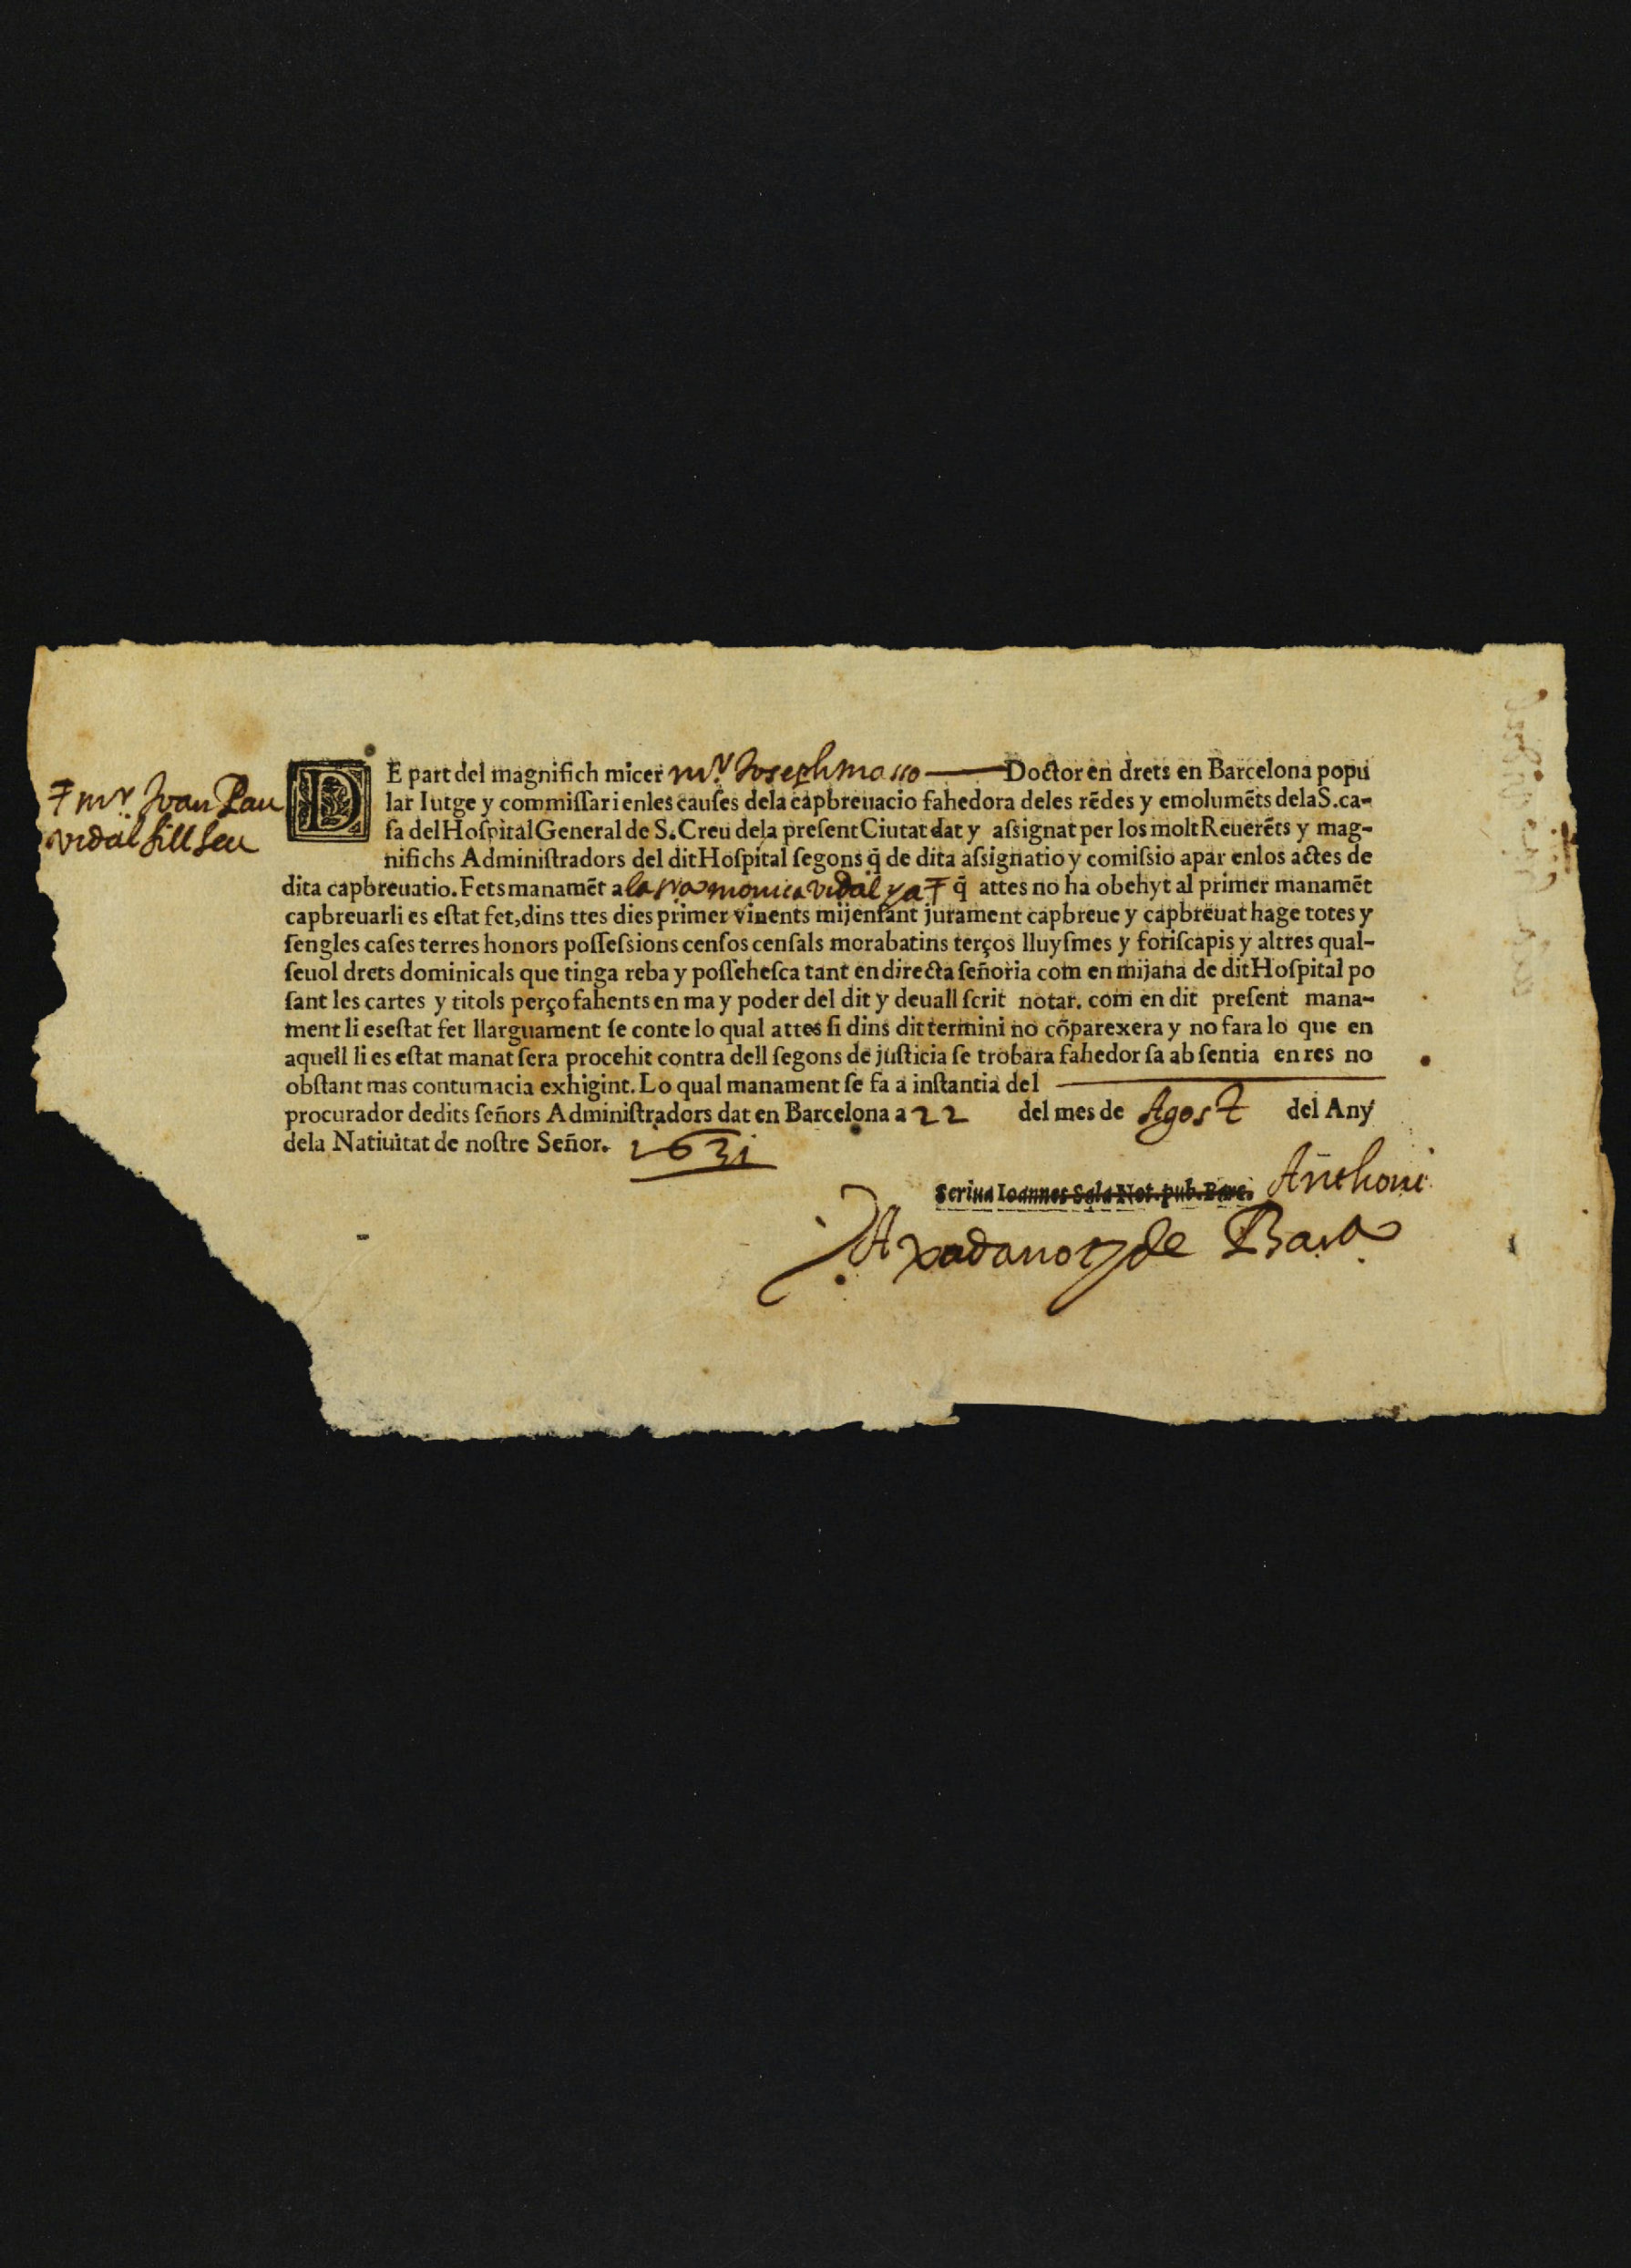 Ŧ mr. Juan Pau
Vidal fill seu
DE part del magnifich micer mr. Joseph masso Doctor en drets en Barcelona popu
lar Iutge y commiſſari enles cauſes dela capbreuacio fahedora deles rẽdes y emolumẽts dela S. ca-
ſa del Hoſpital General de S. Creu dela preſent Ciutat dat y aſsignat per los molt Reuerẽts y mag-
nifichs Adminiſtradors del dit Hoſpital ſegons q̃ de dita aſsignatio y comiſsio apar enlos actes de
dita capbreuatio. Fets manamẽt a la sra monica vidal y a Ŧ q̃ attes no ha obehyt al primer manamẽt
capbreuarli es eſtat fet, dins ttes dies primer vinents mijenſant jurament capbreue y capbreuat hage totes y
ſengles caſes terres honors poſſeſsions cenſos cenſals morabatins terços lluyſmes y foriſcapis y altres qual-
ſeuol drets dominicals que tinga reba y poſſeheſca tant en directa ſeñoria com en mijana de dit Hoſpital po
ſant les cartes y titols perço fahents en ma y poder del dit y deuall ſcrit notar. com en dit preſent mana-
ment li es eſtat fet llarguament ſe conte lo qual attes ſi dins dit termini no cõparexera y no fara lo que en
aquell li es eſtat manat ſera procehit contra dell ſegons de juſticia ſe trobara fahedor ſa ab ſentia en res no
obſtant mas contumacia exhigint. Lo qual manament ſe fa a inſtantia del
procurador dedits ſeñors Adminiſtradors dat en Barcelona a 22 del mes de Agost del Any
dela Natiuitat de noſtre Señor. 1631
Scriua Ioannes Sala Not. pub. Barc. Anthoni
Axada not de Bara